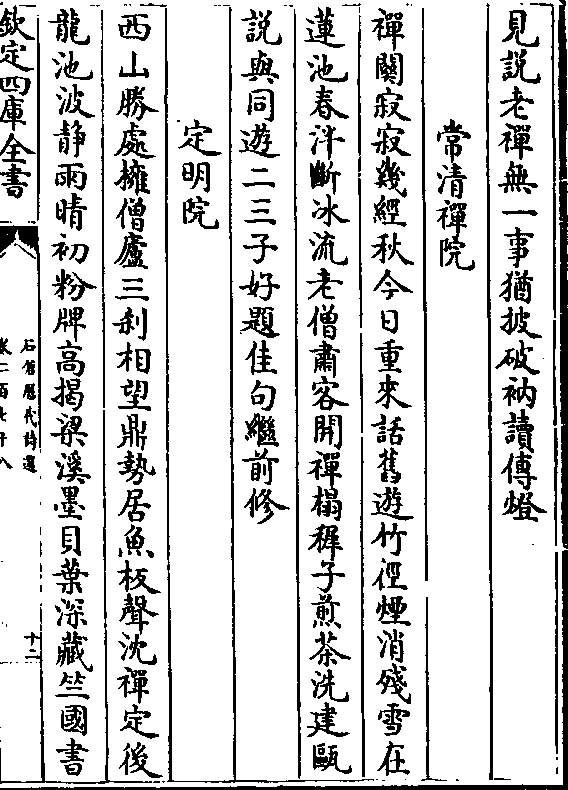 見説老禪無一事猶披破衲讀傳燈
常清禪院
禪關寂寂幾經秋今日重來話舊遊竹徑煙消殘雪在
蓮池春泮斷冰流老僧肅客開禪榻穉子煎茶洗建甌
説與同遊二三子好題佳句繼前修
定明院
西山勝處擁僧廬三刹相望鼎勢居魚板聲沈禪定後
龍池波静雨晴初粉牌高揭梁溪墨貝葉深藏竺國書
欽定四庫全書
石倉歷代詩選
十二